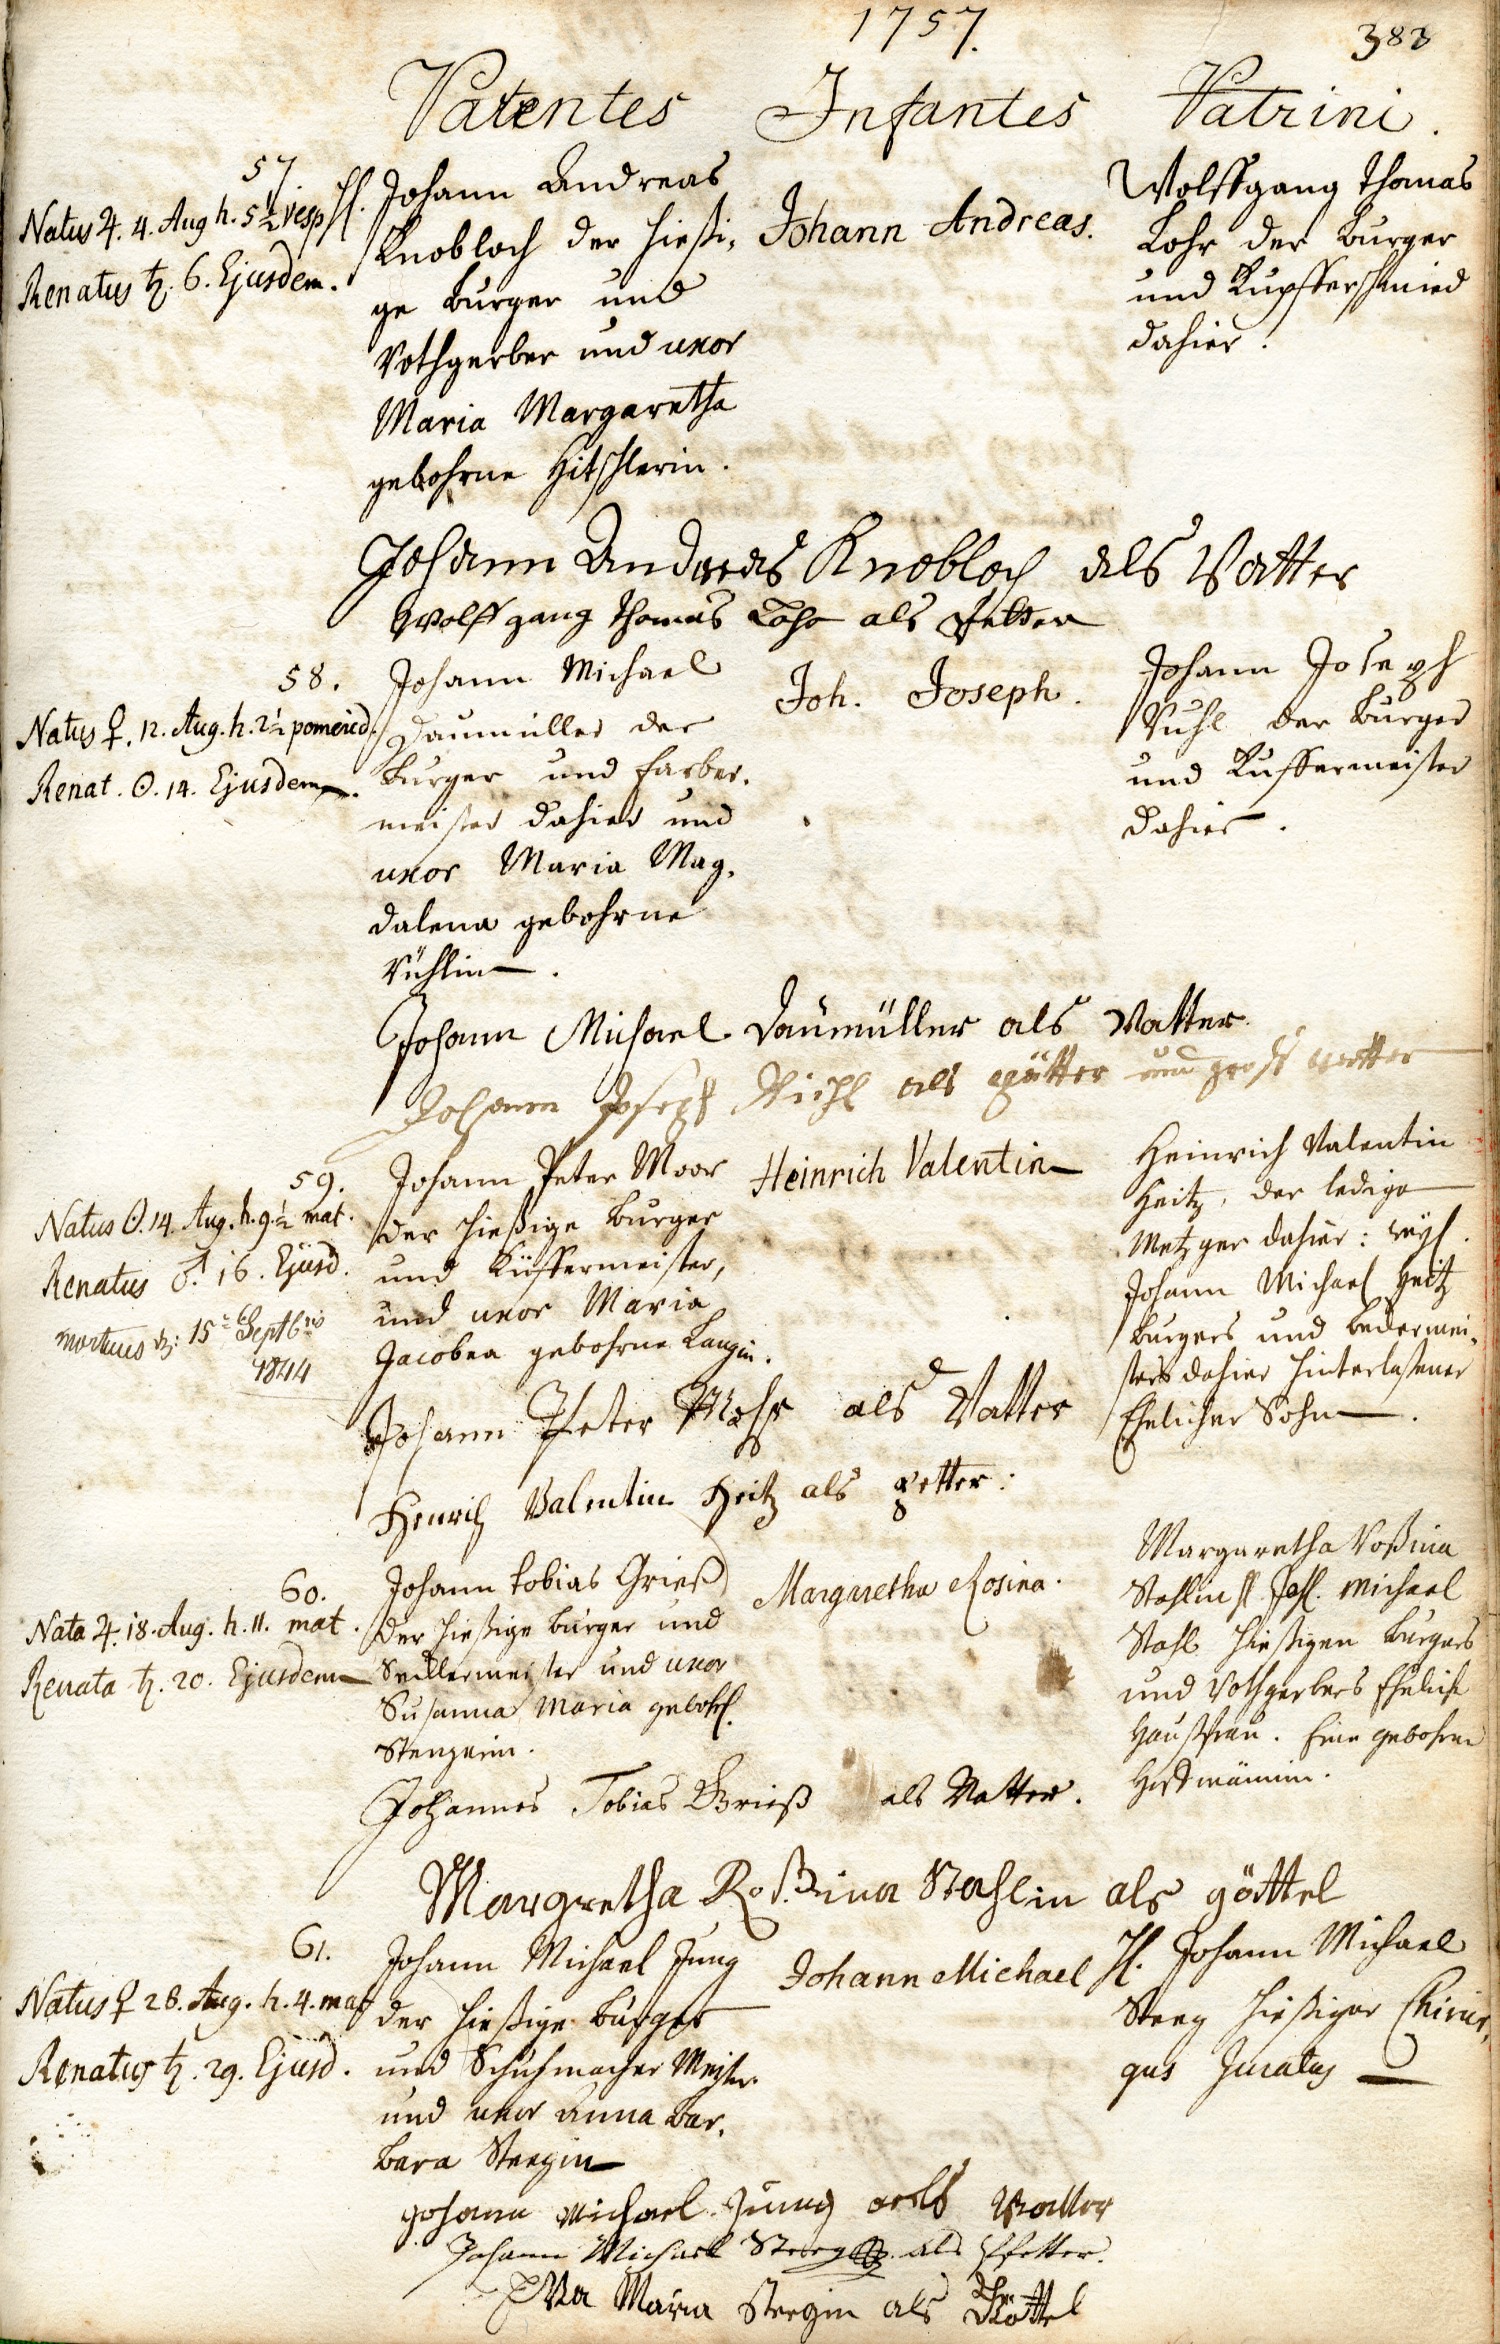 1757.
383
Parentes Infantes Patrini.
57.
Natus ♃. 4. Aug h. 5½ vesp
Renatus ♄. 6. Ejusdem.
H. Johann Andreas
Knobloch der hießi-
ge burger und
Rothgerber und uxor
Maria Margaretha
gebohrne Hitschlerin.
Johann Andreas.
Wolffgang Thomas
Lohr der burger
und Kupfferschmied
dahier.
Johann Andreas Knobloch als Vatter
Wolff gang Thomas Lohr als Petter
58.
Natus ♀. 12. Aug. h. 2½ pomerid.
Renat. ☉. 14. Ejusdem.
Johann Michael
Daumüller der
burger und farber-
meister dahier und
uxor Maria Mag-
dalena gebohrne
Rühlin.
Joh. Joseph.
Johann Joseph
Ruhl der burger
und Kuffermeister
dahier.
Johann Michael Daumüller als Vatter.
Johann Joseph Riehl als pfätter und groß vatter
59.
Natus ☉. 14. Aug. h. 9.½ mat.
Renatus ♂. 16. Ejusd.
mortuus 15 Septbris
1844
Johann Peter Moor
der hießige burger
und Küffermeister,
und uxor Maria
Jacobea gebohrne Langin.
Heinrich Valentin
Heinrich Valentin
Heitz, der ledige
Metzger dahier: weyl.
Johann Michael Heitz
burgers und bedermei-
sters dahier hinterlaßener
Ehelicher Sohn.
Johann Peter Mohr als Vatter
Henrich Valentin Heitz als petter:
60.
Nata ♃. 18. Aug. h. 11. mat.
Renata ♄. 20. Ejusdem
Johann Tobias Grieß
der hießige burger und
Seillermeister und uxor
Susanna Maria gebohr.
Stengerin.
Margaretha Rosina.
Margaretha Roßina
Stahlin H. Joh. Michael
Stahl hießigen burgers
und Rothgerbers Ehelich
Haußfrau. Eine gebohrne
Hoffmännin.
Johannes Tobias Grieß als Vatter.
Margretha Roßina Stahlin als göttel
61.
Natus ♀ 28. Aug. h. 4. mat
Renatus ♄. 29. Ejusd.
Johann Michael Jung
der hießige burger
und Schuhmacher Meister
und uxor Anna Bar-
bara Steegin
Johann Michael
H. Johann Michael
Steeg hießiger Chirur-
gus Juratus
Johann Michael Jung als Vatter
Johann Michael Steeg als Pfetter.
Eva Maria Steegin als Göttel